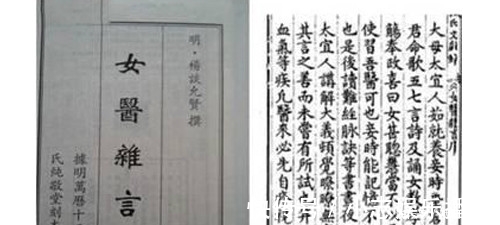 明·楊談允賢撰
女醫雜言
據明萬曆十
氏純敬堂刻本
大母太宜人茹就養妾時
君命歌五七言詩及誦女教
觴奉政喜曰女甚聰慧當
使習吾醫可也妾時能記憶不
也是後讀難經脉訣等書晝夜
太宜人講解大義頓覺瞭瞭無
其言之善而未嘗有所試也笄
血氣等疾凡醫來必先自